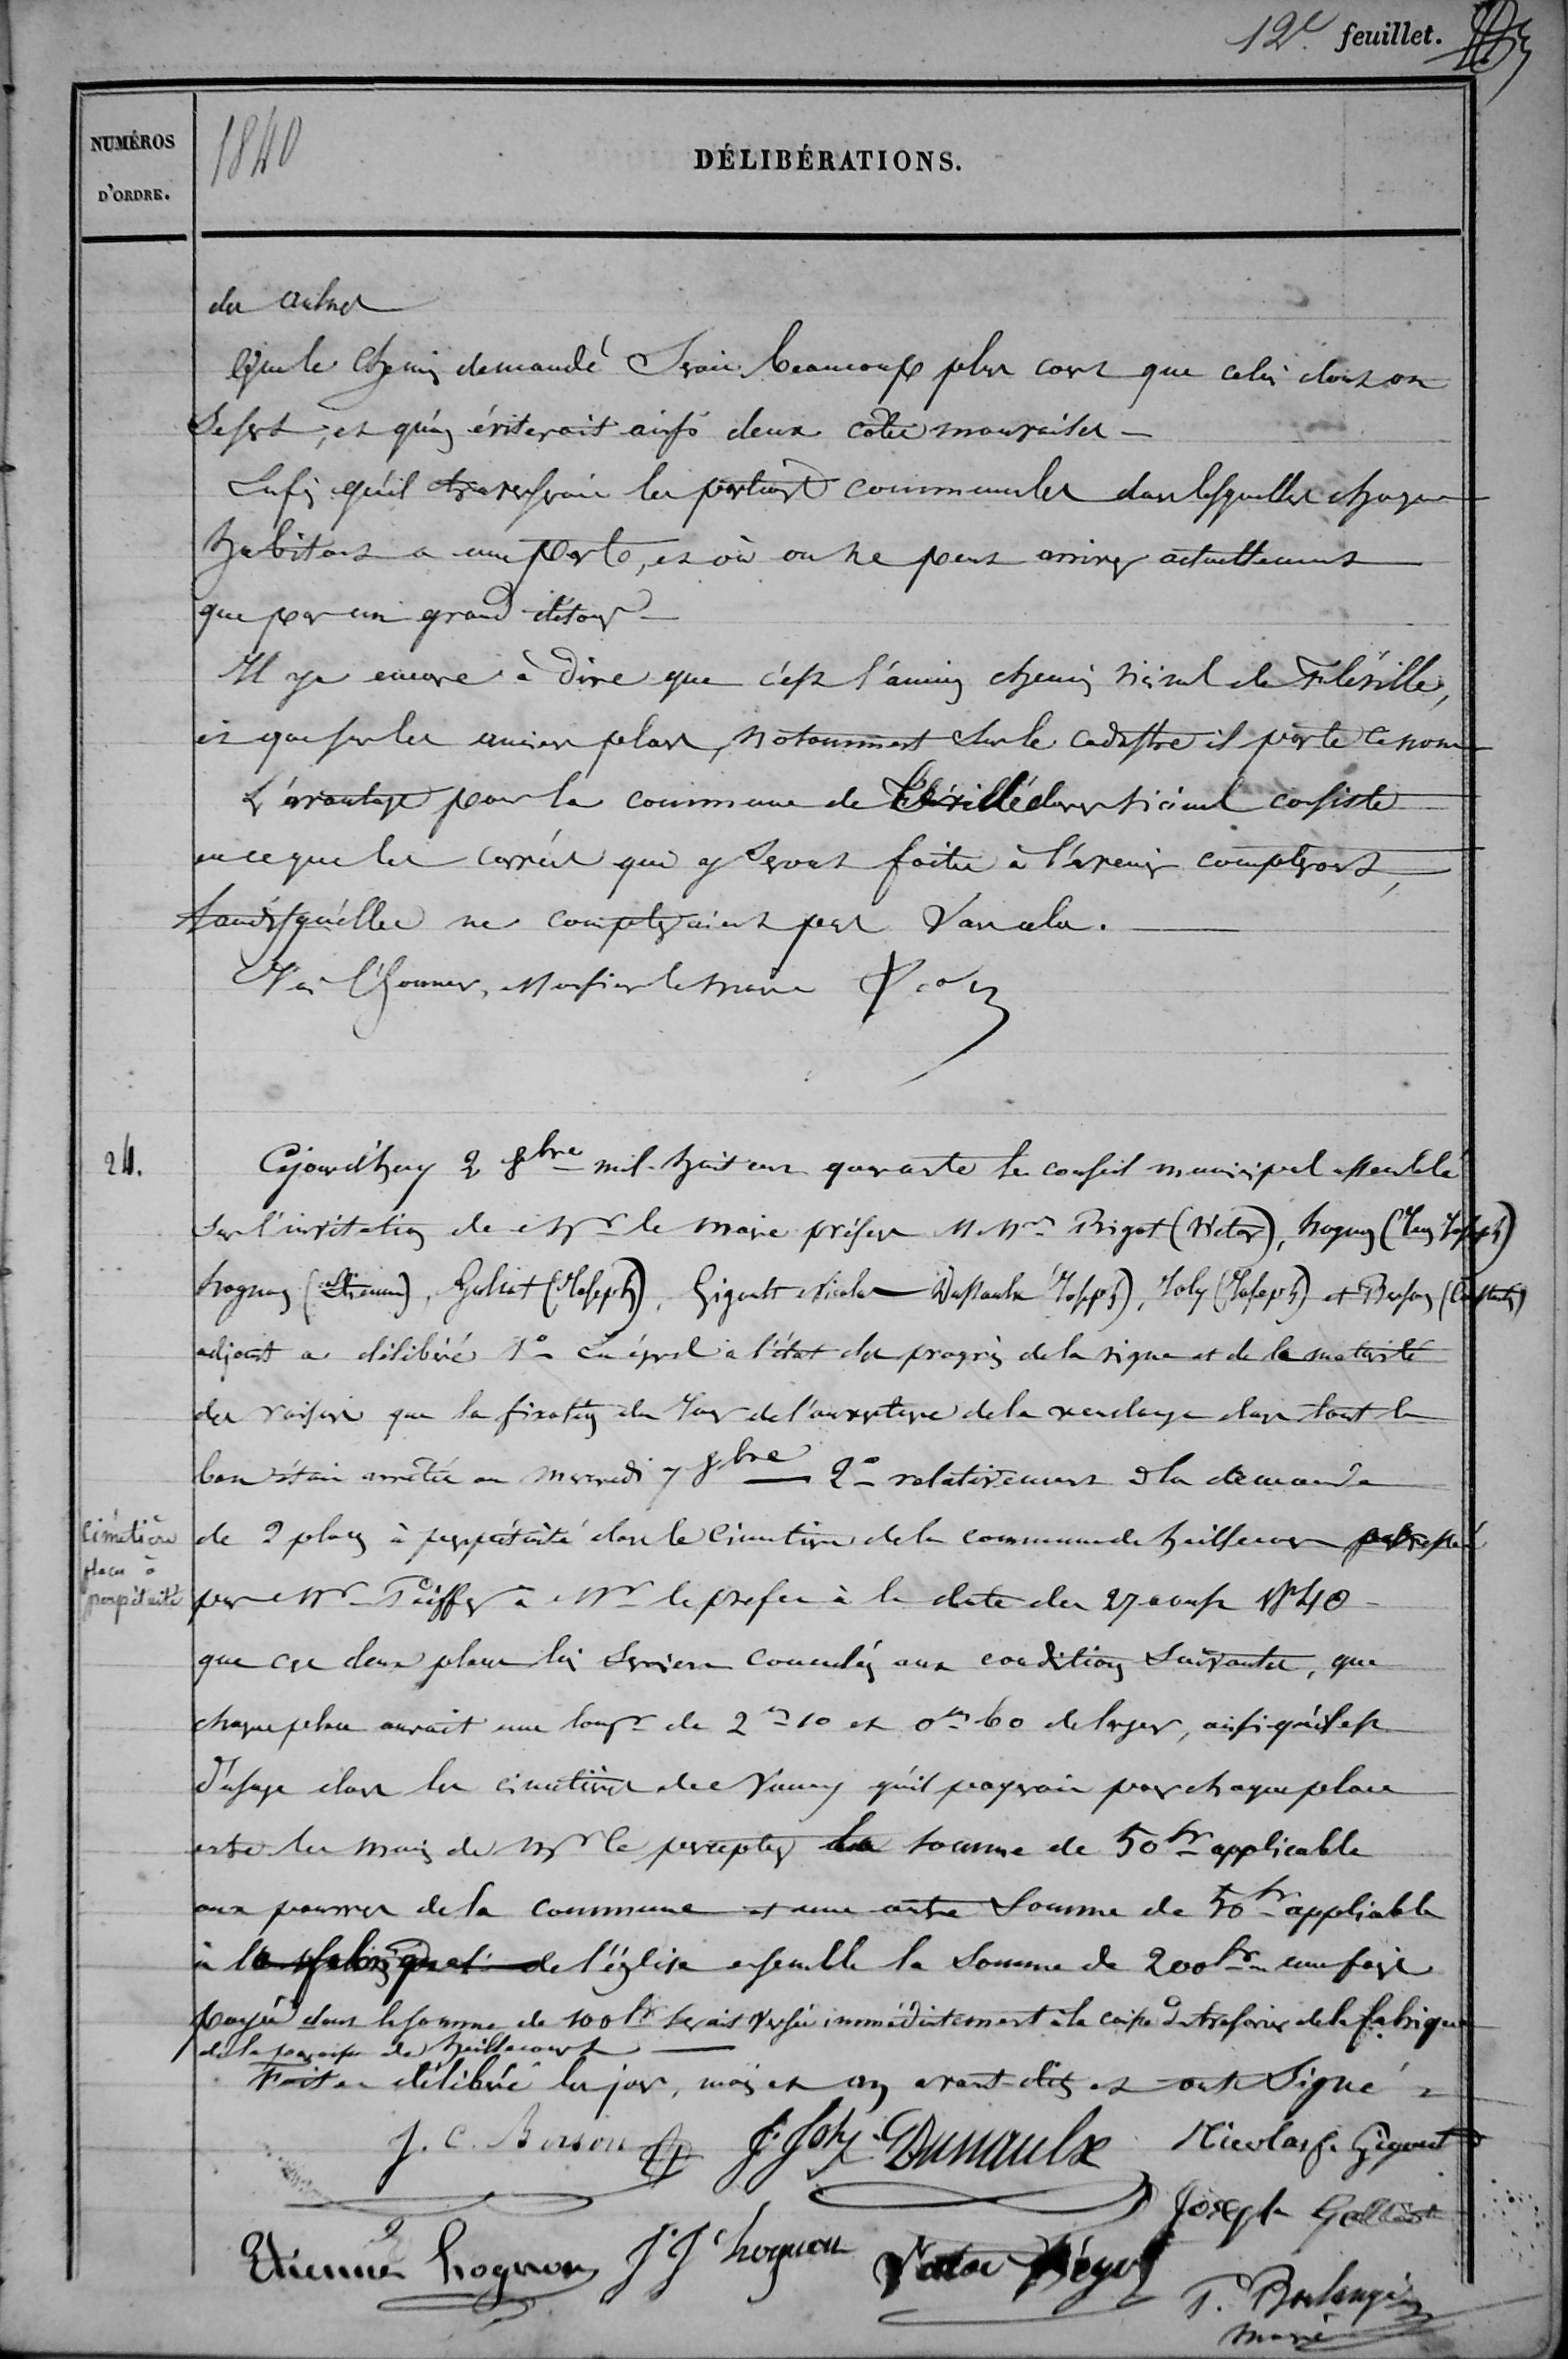 12e. feuillet.
NUMÉROS
D'ORDRE.
1840
DÉLIBÉRATIONS.
des autres
Que le chemin demandé serait beaucoup plus court que celui dont on
se sert, et qu'on éviterait ainsi deux côtes mauvaises —
Enfin qu'il traverserait les portions communales dans lesquelles chaque
habitant a une part, et où on ne peut arriver actuellement
que par un grand détour —
Il y a encore à dire que c'est l'ancien chemin vicinal de Fléville,
et que sur les anciens plans, notamment sur le cadastre il porte ce nom
L'avantage pour la commune de vicinal consiste
en ce que les corvées qui y seront faites à l'avenir compteront,
tandis qu'elles ne compteraient pas sans cela.
J'ai l'honneur, Monsieur le Maire
24.
Cejourd'huy 2 8bre mil huit cent quarante le conseil municipal assemblé
sur l'invitation de Mr le Maire présens M Mrs Bigot (Victor), hognon (Jean Joseph)
hognon (Etienne), Goliot (Joseph), Gigout Nicolas Dussaulx (Joseph), Joly (Joseph) et Berson (Constant)
adjoint a délibéré 1o eu égard à l'état des progrès de la vigne et de la maturité
des raisins que la fixation du jour de l'ouverture de la vendange dans tout le
ban était arrêtée au mercredi 7 8bre — 2o relativement à la demande
Cimetière
places à
perpétuité
de 2 places à perpétuité dans le cimetière de la commune de heillecourt
par Mr Paiffer à Mr le préfet à la date du 27 aoust 1840 —
que ces deux places lui seraient concédées aux conditions suivantes, que
chaque place aurait une longr de 2m 10 et 0m 60 de largeur, ainsi qu'il est
d'usage dans les cimetières de Nancy qu'il payerait pour chaque place
entre les mains de Mr le percepteur la somme de 50fr applicable
aux pauvres de la commune et une autre somme de 50fr applicable
à la fabrique de l'église ensemble la somme de 200fr une fois
payée dont la somme de 100fr serait versée immédiatement à la caisse du trésorier de la fabrique
de la paroisse de heillecourt —
Fait et délibéré les jour, mois et an avant-dits et ont signé
J. C. Berson J. Joly Dussaulx Nicolas f. Gigout
Joseph Golliot
Etienne hognon J J hognon Victor Bigot
P. Boulangé
maire